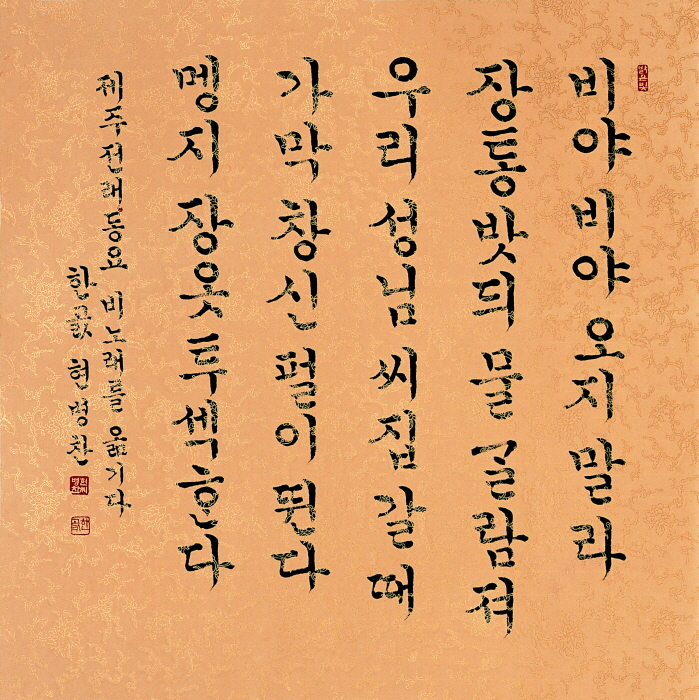 비야 비야 오지 말라
장통밧듸 물 ᄀᆞᆯ람져
우리 성님 씨집 갈 때
가막창신 펄이 뒌다
멩지 장옷 투섹ᄒᆞᆫ다
제주전래동요 비노래를 옮기다
한곬 현병찬